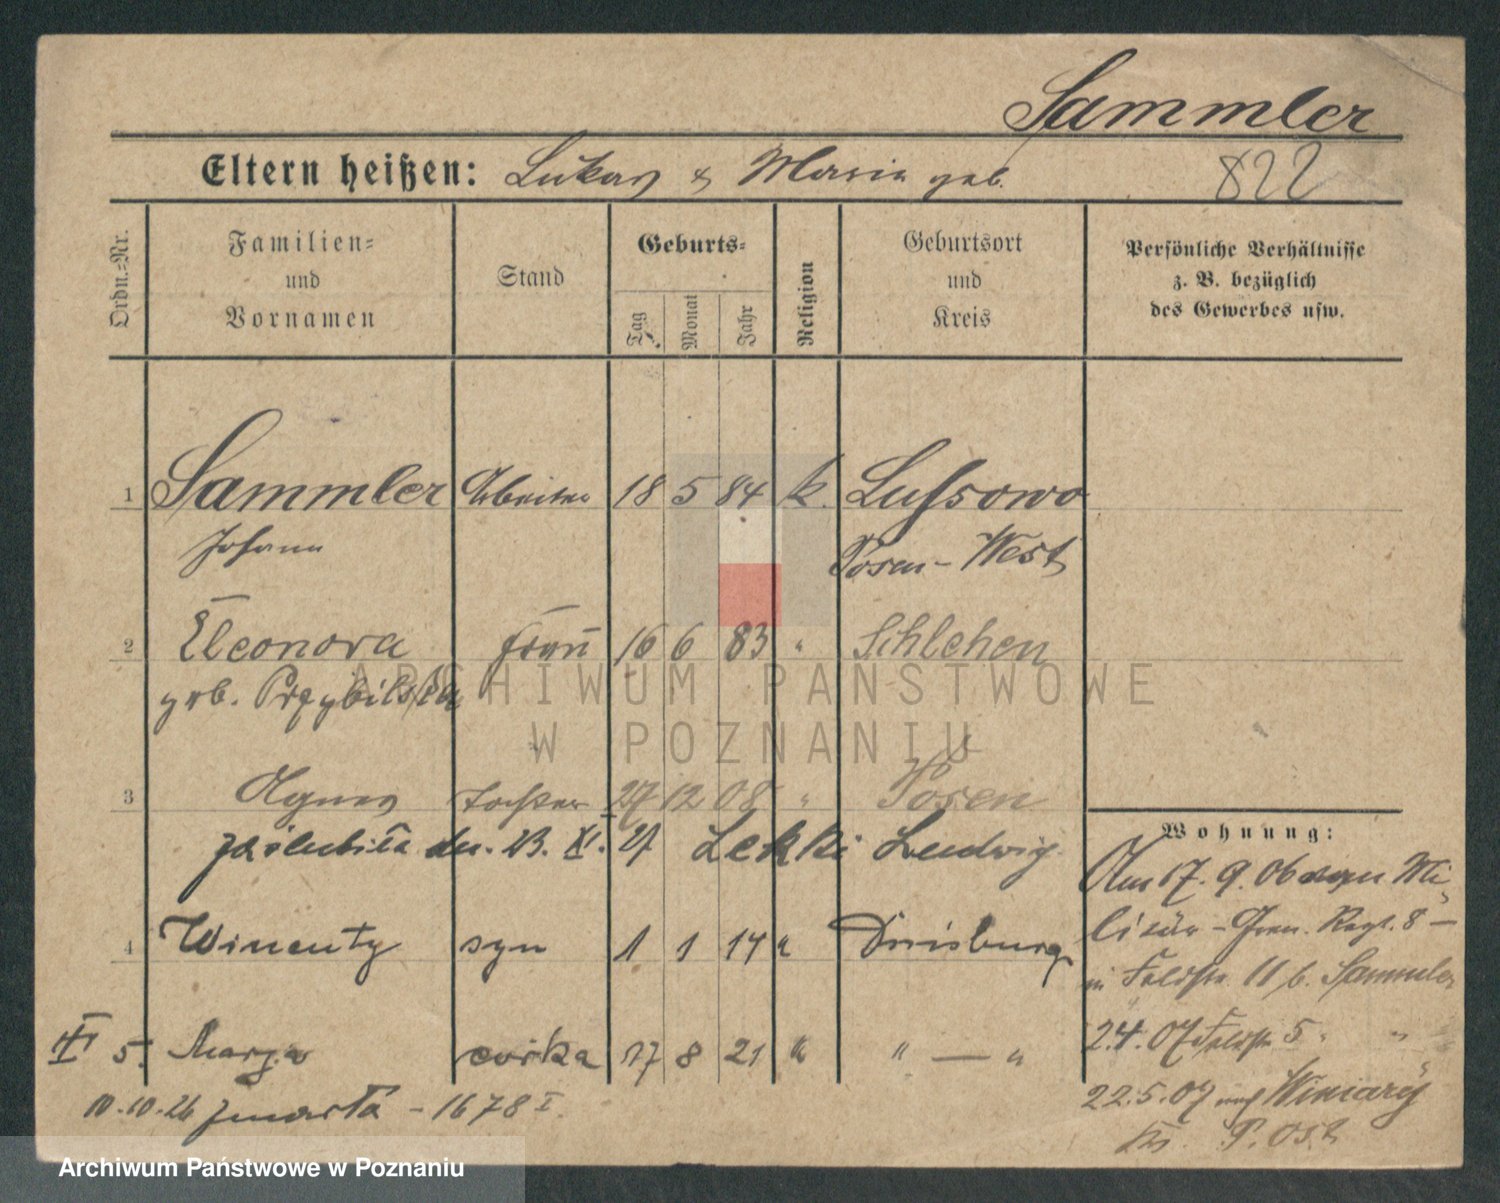 Sammler
Eltern heißen: Lukas & Maria geb.
822
Ordn.=Nr.
Familien=
und
Vornamen
Stand
Geburts=
Tag
Monat
Jahr
Religion
Geburtsort
und
Kreis
Persönliche Verhältnisse
z. B. bezüglich
des Gewerbes usw.
1 Sammler Arbeiter 18 5 84 k. Lussowo
Johann Posen-West
2 Eleonora Frau 16 6 83 " Schlehen
geb. Przybilska
3 Agnes Tochter 27 12 08 " Posen
zaślubiła dn. 23. XI. 27 Lekki Ludwig
4 Wincenty syn 1 1 14 " Duisburg
5. Marja córka 17 8 21 " " — "
10.10.26 zmarła - 1678 I.
Wohnung:
Am 17. 9. 06 vom Mi-
litär - Gren. Regt. 8 -
in Feldstr. 11 b. Sammler
2.4.07 Feldstr 5 " "
22.5.07 nach Winiary
Kr. P. Ost
ARCHIWUM PAŃSTWOWE
W POZNANIU
Archiwum Państwowe w Poznaniu